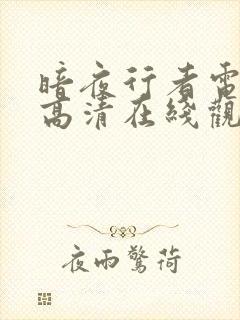 暗夜行者電
高清在綫觀
夜雨驚荷